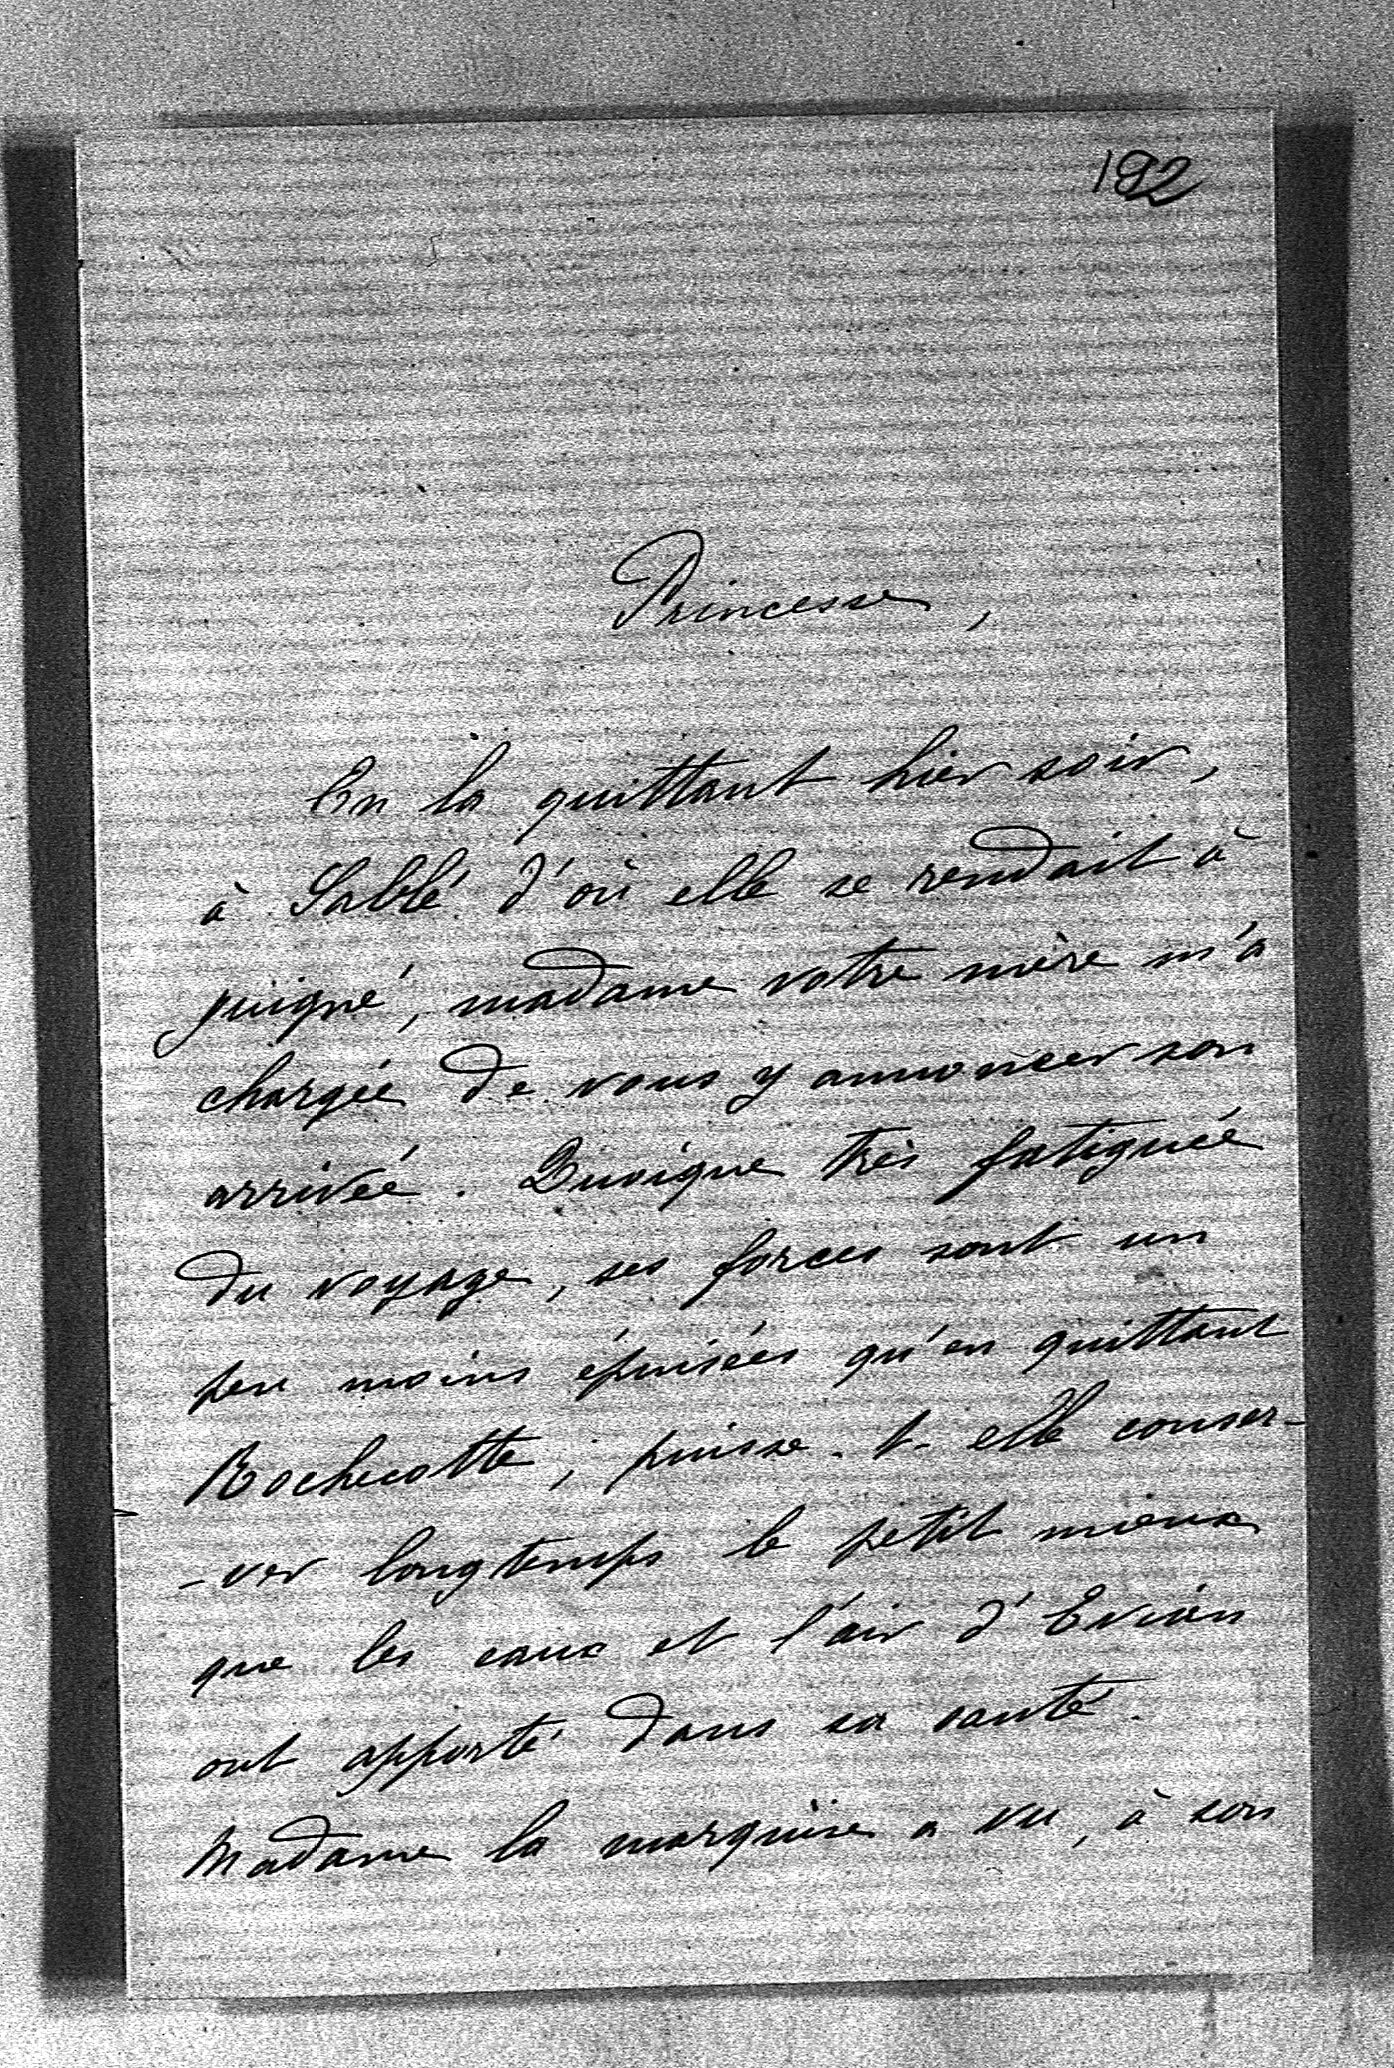 192
Princesse,
En la quittant hier soir,
à Sablé d'où elle se rendait à
Juigné, madame votre mère m'a
chargée de vous y annoncer son
arrivée. Quoique très fatiguée
du voyage, ses forces sont un
peu moins épuisées qu'en quittant
Rochecotte; puisse-t-elle conser-
-ver longtemps le petit mieux
que les eaux et l'air d'Evian
ont apporté dans sa santé.
Madame la marquise a vu, à son